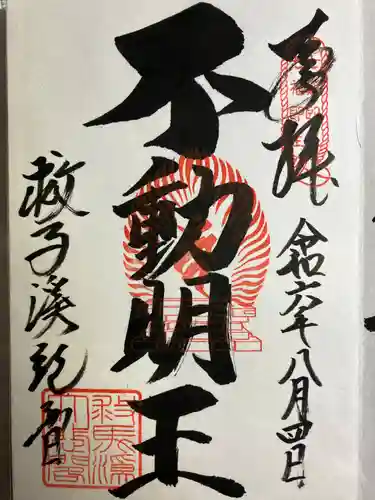 奉拝
令和六年八月四日
不動明王
救馬溪観音